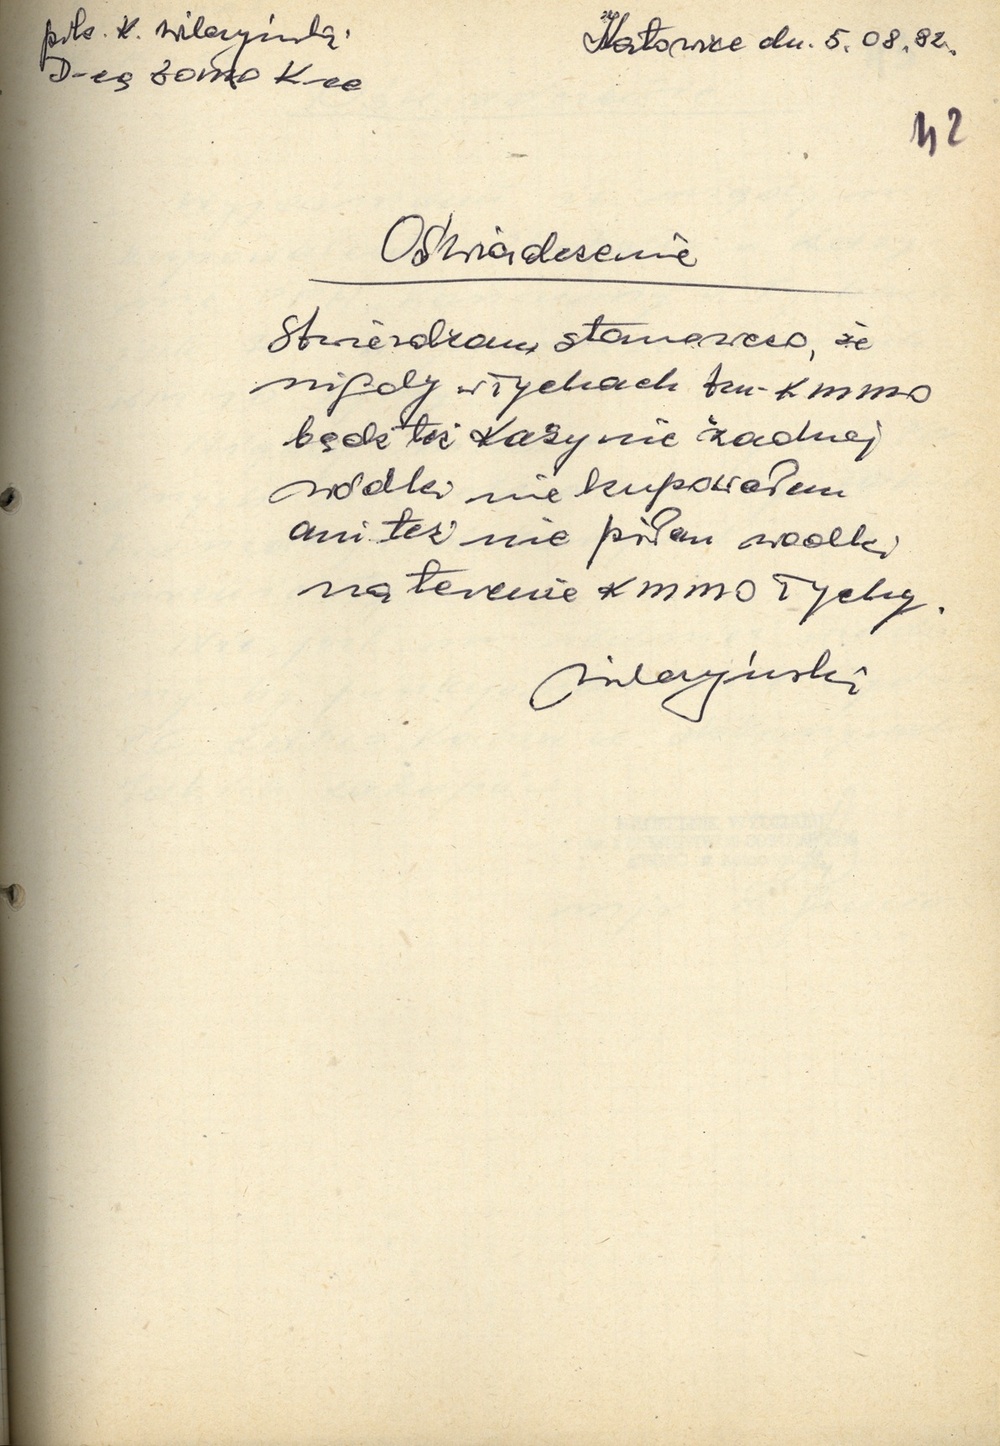 płk. K. Wilczyński
D-ca ZOMO K-ce
Katowice dn. 5.08.82.
42
Oświadczenie
Stwierdzam stanowczo, że
nigdy w Tychach tzn. KMMO
bądź też Kasynie żadnej
wódki nie kupowałem
ani też nie piłem wódki
na terenie KMMO Tychy.
Wilczyński